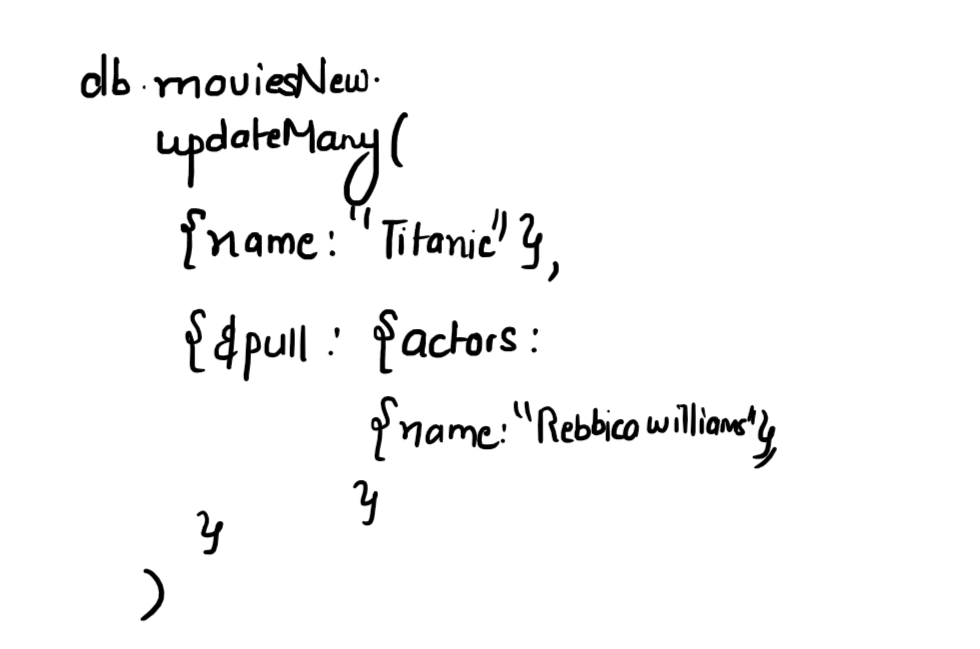 db.moviesNew.
updateMany(
{name: "Titanic"},
{$pull: {actors:
{name: "Rebbica williams"},
}
}
)